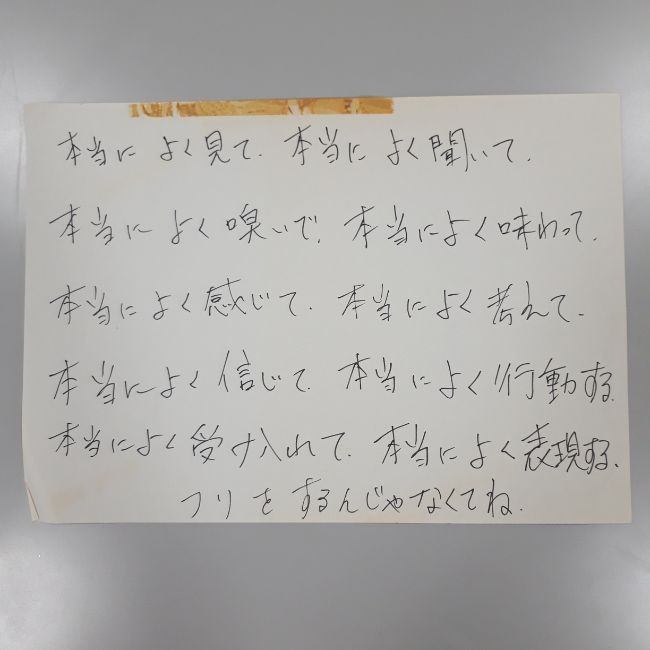 本当に よく見て. 本当に よく聞いて.
本当に よく 嗅いで. 本当によく味わって.
本当に よく感じて. 本当に よく 考えて.
本当に よく 信じて. 本当に よく 行動する.
本当に よく 受け入れて. 本当に よく表現する.
フリを するんじゃなくてね.